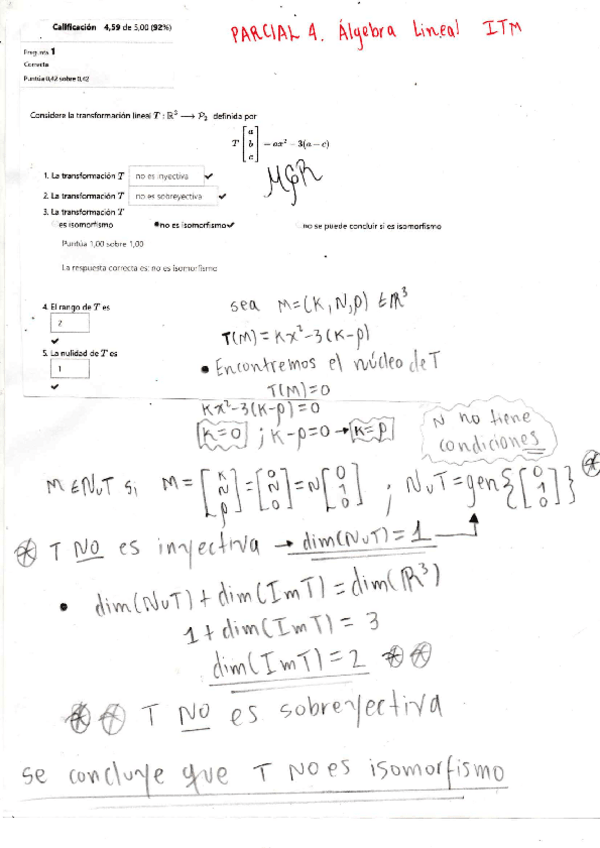 Calificación 4,59 de 5,00 (92%)
PARCIAL 4. Álgebra Lineal ITM
Pregunta 1
Correcta
Puntúa 0,42 sobre 0,42
Considere la transformación lineal T : ℝ³ ⟶ P₂ definida por
T [a b c] = ax² − 3(a − c)
MGR
1. La transformación T no es inyectiva ✓
2. La transformación T no es sobreyectiva ✓
3. La transformación T
es isomorfismo no es isomorfismo ✓ no se puede concluir si es isomorfismo
Puntúa 1,00 sobre 1,00
La respuesta correcta es: no es isomorfismo
4. El rango de T es
2
✓
5. La nulidad de T es
1
✓
sea M=(K,N,p) ∈ ℝ³
T(M)=Kx²-3(K-p)
• Encontremos el núcleo de T
T(M)=0
Kx²-3(K-p)=0
K=0 ; K-p=0 → K=p
N no tiene
condiciones
M ∈ NuT si M = [K N p] = [0 N 0] = N[0 1 0] ; NuT = gen{[0 1 0]} *
* T NO es inyectiva → dim(NuT)=1
• dim(NuT)+dim(ImT)=dim(ℝ³)
1+dim(ImT)=3
dim(ImT)=2 **
** T NO es sobreyectiva
se concluye que T NO es isomorfismo